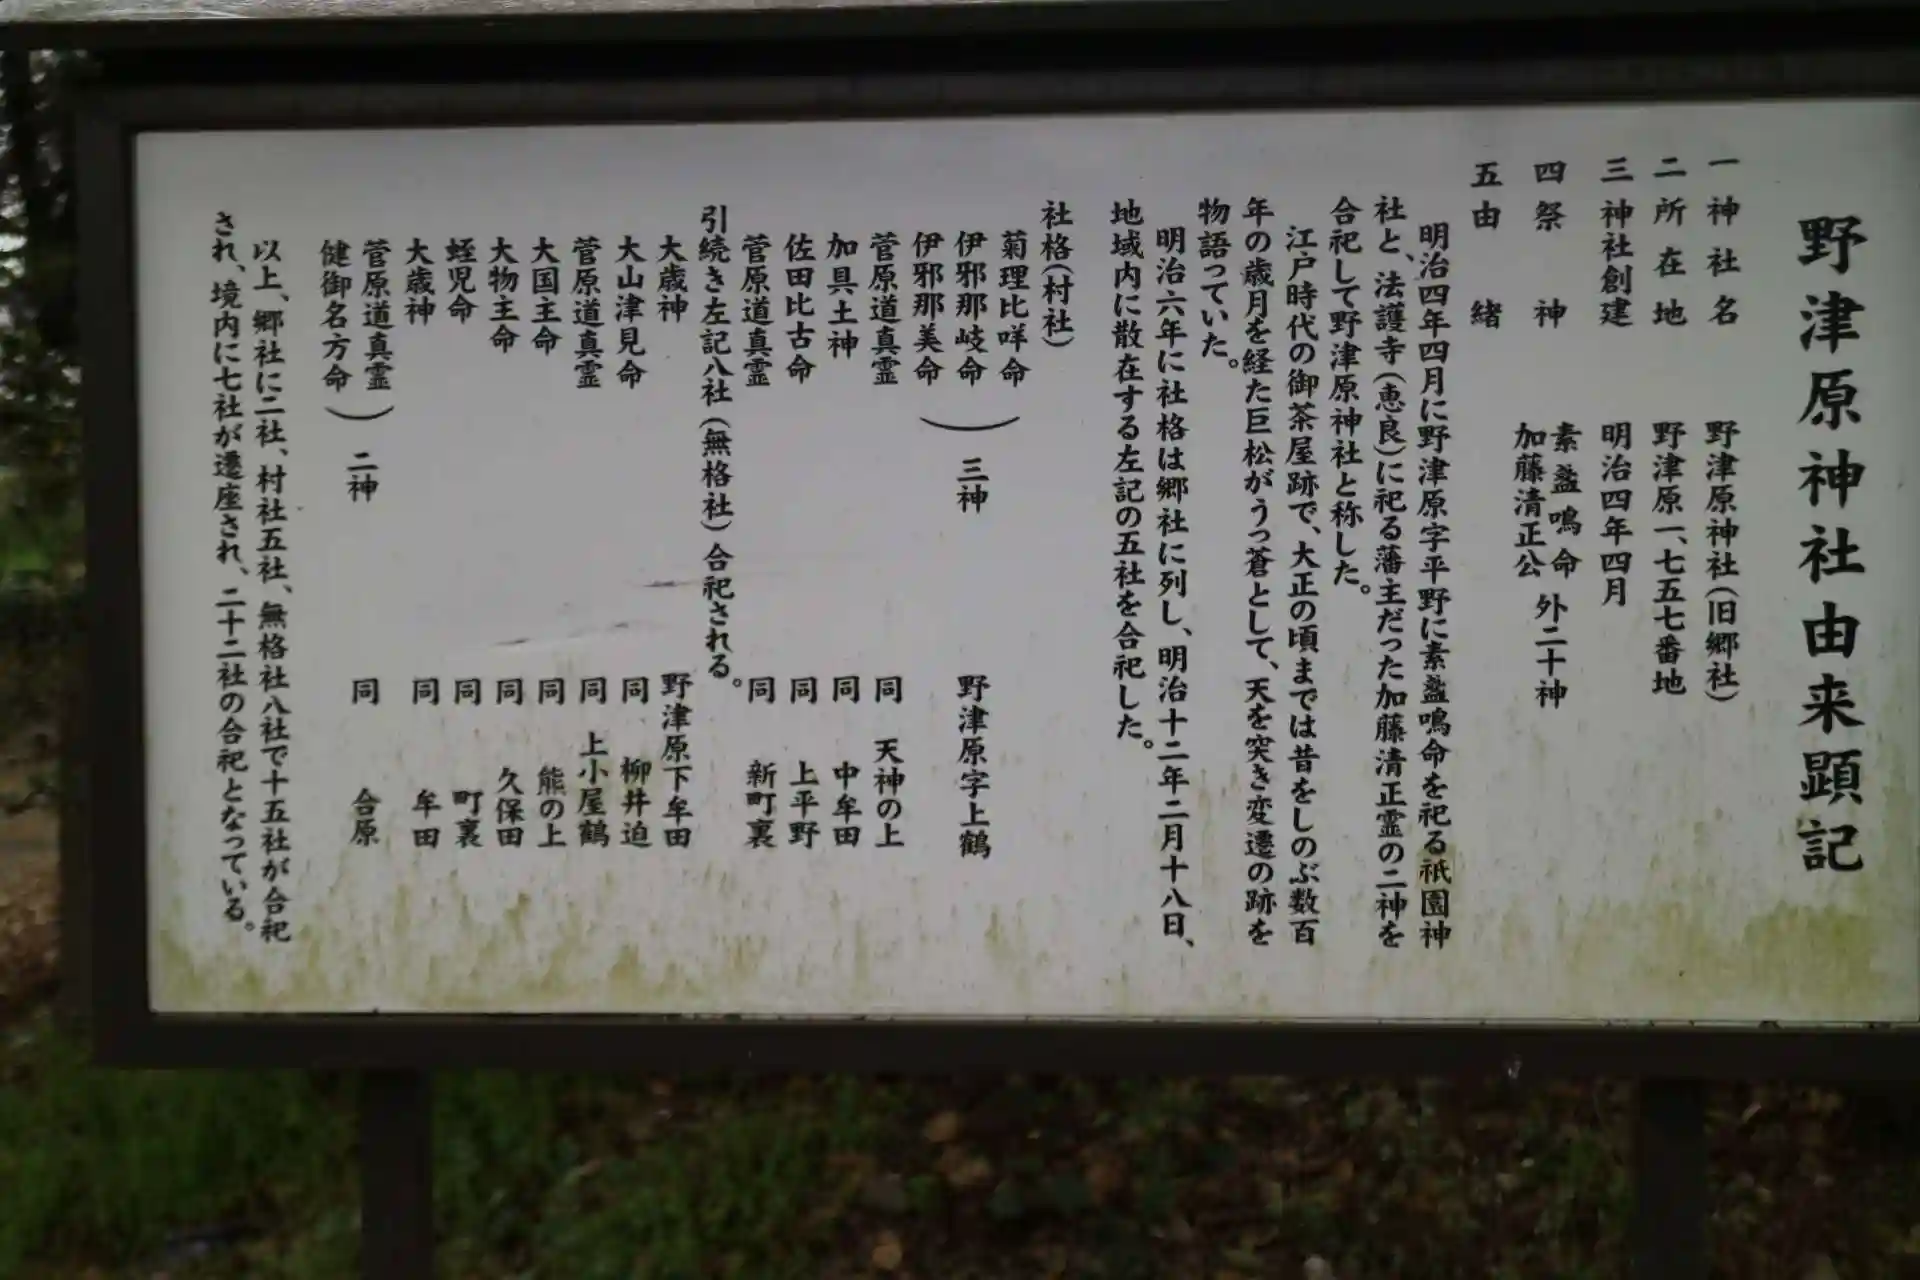 野津原神社由来顕記
一 神社名 野津原神社(旧郷社)
二 所在地 野津原一、七五七番地
三 神社創建 明治四年四月
四 祭神 素盞鳴命
加藤清正公 外二十神
五 由緒
明治四年四月に野津原字平野に素盞鳴命を祀る祇園神
社と、法護寺(恵良)に祀る藩主だった加藤清正霊の二神を
合祀して野津原神社と称した。
江戸時代の御茶屋跡で、大正の頃までは昔をしのぶ数百
年の歳月を経た巨松がうっ蒼として、天を突き変遷の跡を
物語っていた。
明治六年に社格は郷社に列し、明治十二年二月十八日、
地域内に散在する左記の五社を合祀した。
社格(村社)
菊理比咩命
伊邪那岐命 三神 野津原字上鶴
伊邪那美命
菅原道真霊 同 天神の上
加具土神 同 中牟田
佐田比古命 同 上平野
菅原道真霊 同 新町裏
引続き左記八社(無格社)合祀される。
大歳神 野津原下牟田
大山津見命 同 柳井迫
菅原道真霊 同 上小屋鶴
大国主命 同 熊の上
大物主命 同 久保田
蛭児命 同 町裏
大歳神 同 牟田
菅原道真霊
健御名方命 二神 同 合原
以上、郷社に二社、村社五社、無格社八社で十五社が合祀
され、境内に七社が遷座され、二十二社の合祀となっている。